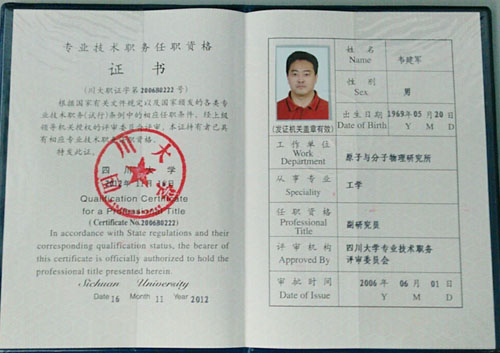 专业技术职务任职资格
证书
(川大职证字第200680222号)
根据国家有关文件规定以及国家颁发的各类专
业技术职务(试行)条例中的相应任职条件，经上级
领导机关授权的评审委员会评审，本证持有者已具
有相应专业技术职务任职资格。
特发此证。
四川大学
2012年11月16日
Qualification Certificate
for a Professional Title
(Certificate No.200680222)
In accordance with State regulations and their
corresponding qualification status, the bearer of
this certificate is officially authorized to hold the
professional title presented herein.
Sichuan University
Date 16 Month 11 Year 2012
(发证机关盖章有效)
姓名
Name
韦建军
性别
Sex
男
出生日期
Date of Birth
1969年05月20日
Y M D
工作单位
Work
Department
原子与分子物理研究所
从事专业
Speciality
工学
任职资格
Professional
Title
副研究员
评审机构
Approved By
四川大学专业技术职务
评审委员会
审批时间
Date of Issue
2006年06月01日
Y M D